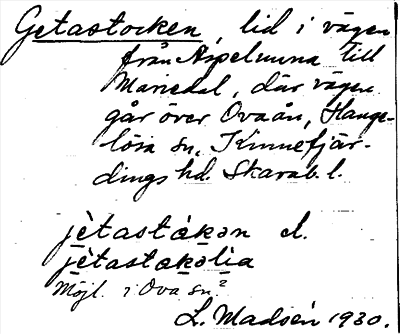 Getastocken, lid i vägen
från Aspelunna till
Mariedal, där vägen
går över Ovaån, Hange-
lösa sn, Kinnefjär-
dings hd. Skarab. l.
jètaståkən el.
jètastakəlia
Möjl. i Ova sn?
L. Madsén 1930.